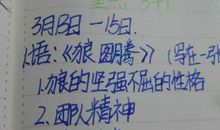 3月13日—15日.
语:《狼图腾》(写在一张
1.狼的坚强不屈的性格
2.团队精神